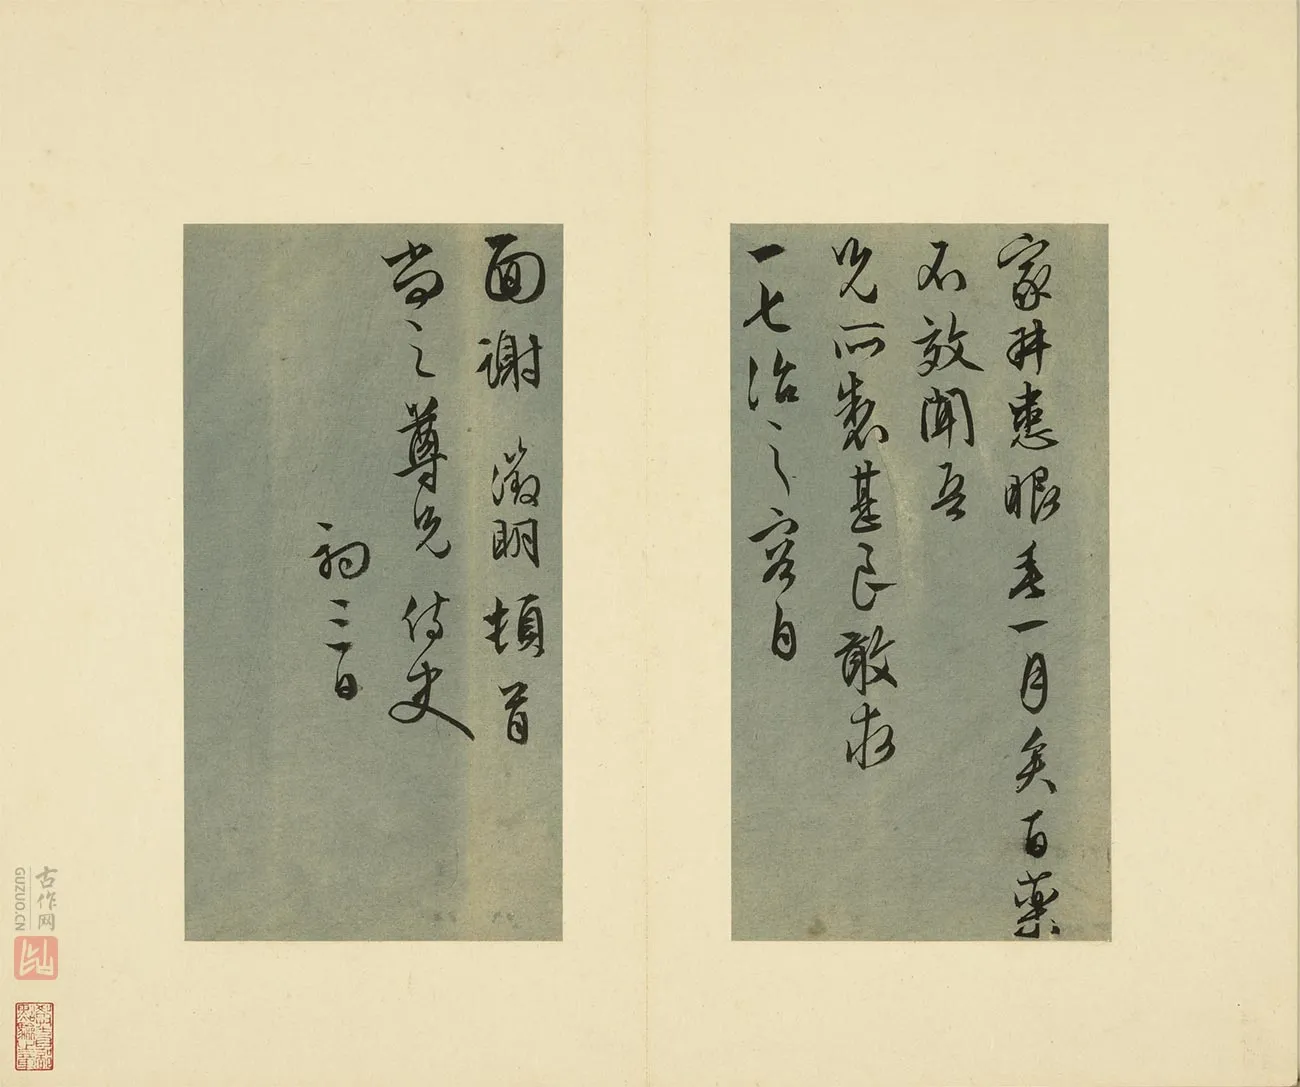 家井患眼垂一月矣百藥
不效聞吾
兄所製甚良敢求
一七治之容自
面謝 徵明頓首
尚之尊兄侍史
初三日
古作网
GUZUO.CN